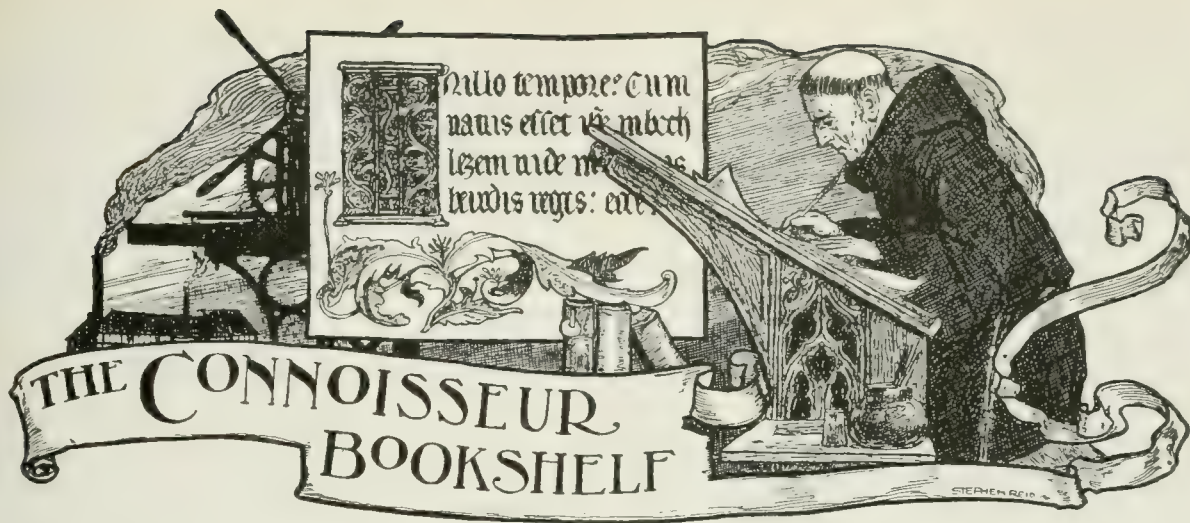 INillo tempore: Cum
natus esset ihē inbeth
lezem iude
herodis regis:
THE CONNOISSEUR
BOOKSHELF
STEPHEN REID